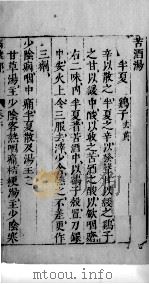 苦酒湯
半夏 鷄子去黃
辛以散之半夏之辛以發聲音甘以緩之鷄子
之甘以緩咽痛酸以收之苦酒之酸以斂咽瘡
右二味內半夏著苦酒中以鷄子殼置刀鐶
中安火上令三沸去滓少少含嚥之不差更作
三劑
少陰病咽中痛半夏散及湯主之
甘草湯主少陰客熱咽痛桔梗湯主少陰寒
www.toopoo.com